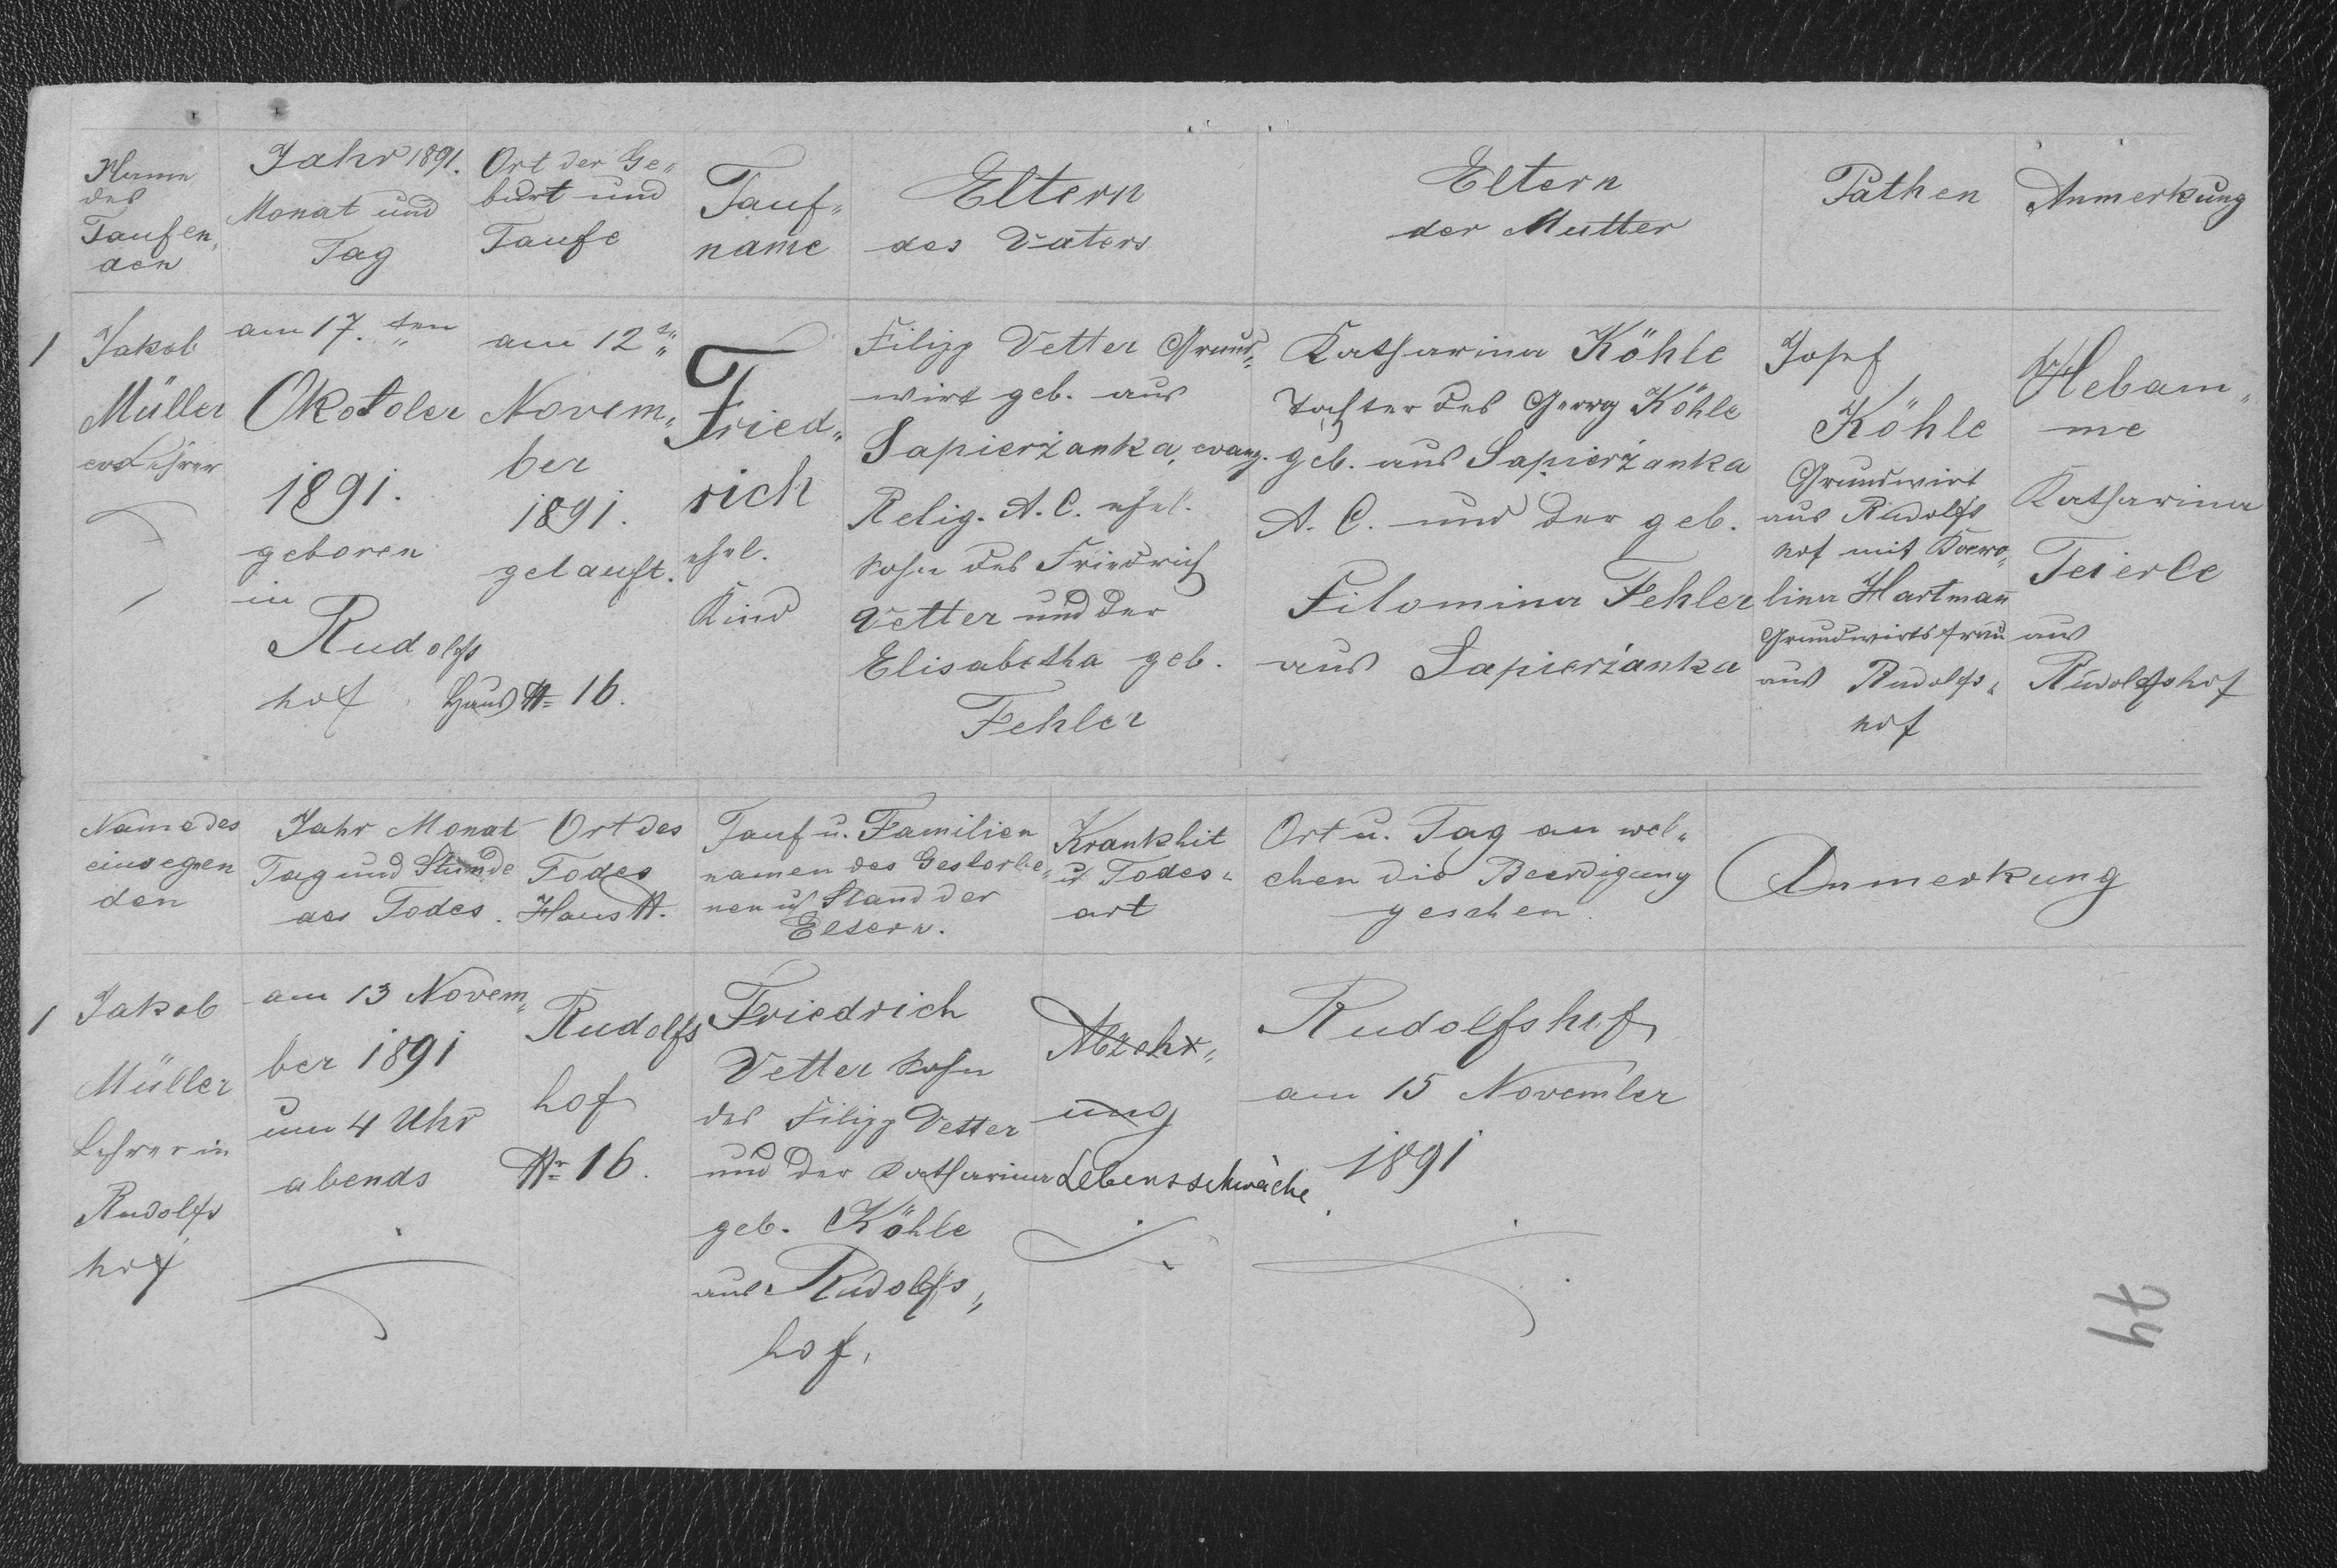 Name
des
Taufen„
den
Jahr 1891.
Monat und
Tag
Ort der Ge„
burt und
Taufe
Tauf„
name
Eltern
des Vaters
Eltern
der Mutter
Pathen
Anmerkung
1
Jakob
Müller
Lehrer
am 17. ten
Okotober
1891.
geboren
in
Rudolfs
hof
Haus N= 16.
am 12
Novem„
ber
1891.
getauft.
Fried„
rich
ehel.
Kind
Filipp Vetter Grund„
wirt geb. aus
Sapierżanka, evang.
Relig. A. C. ehel.
Sohn des Friedrich
Vetter und der
Elisabetha geb.
Fehler
Katharina Köhle
Tochter des Georg Köhle
geb. aus Sapierżanka
A. C. und der geb.
Filomina Fehler
aus Sapierżanka
Josef
Köhle
Grundwirt
aus Rudolfs
hof mit Karo„
lina Hartmañ
Grundwirtsfrau
aus Rudolfs„
hof
Hebam„
me
Katharina
Feierle
aus
Rudolfshof
Name des
einsegnen
den
Jahr Monat
Tag und Stunde
des Todes.
Ort des
Todes
Haus N.
Tauf u. Familien
namen des Gestorbe„
nen u. Stand der
Eltern.
Krankhit
u. Todes„
art
Ort u. Tag an wel„
chen die Beerdigung
geschen.
Anmerkung
1
Jakob
Müller
Lehrer in
Rudolfs
hof
am 13 Novem„
ber 1891
um 4 Uhr
abends
Rudolfs
hof
Nr= 16.
Friedrich
Vetter Sohn
des Filipp Vetter
und der Katharina
geb. Köhle
aus Rudolfs„
hof,
Abzehr„
ung
Lebensschwäche
Rudolfshof
am 15 November
1891
74